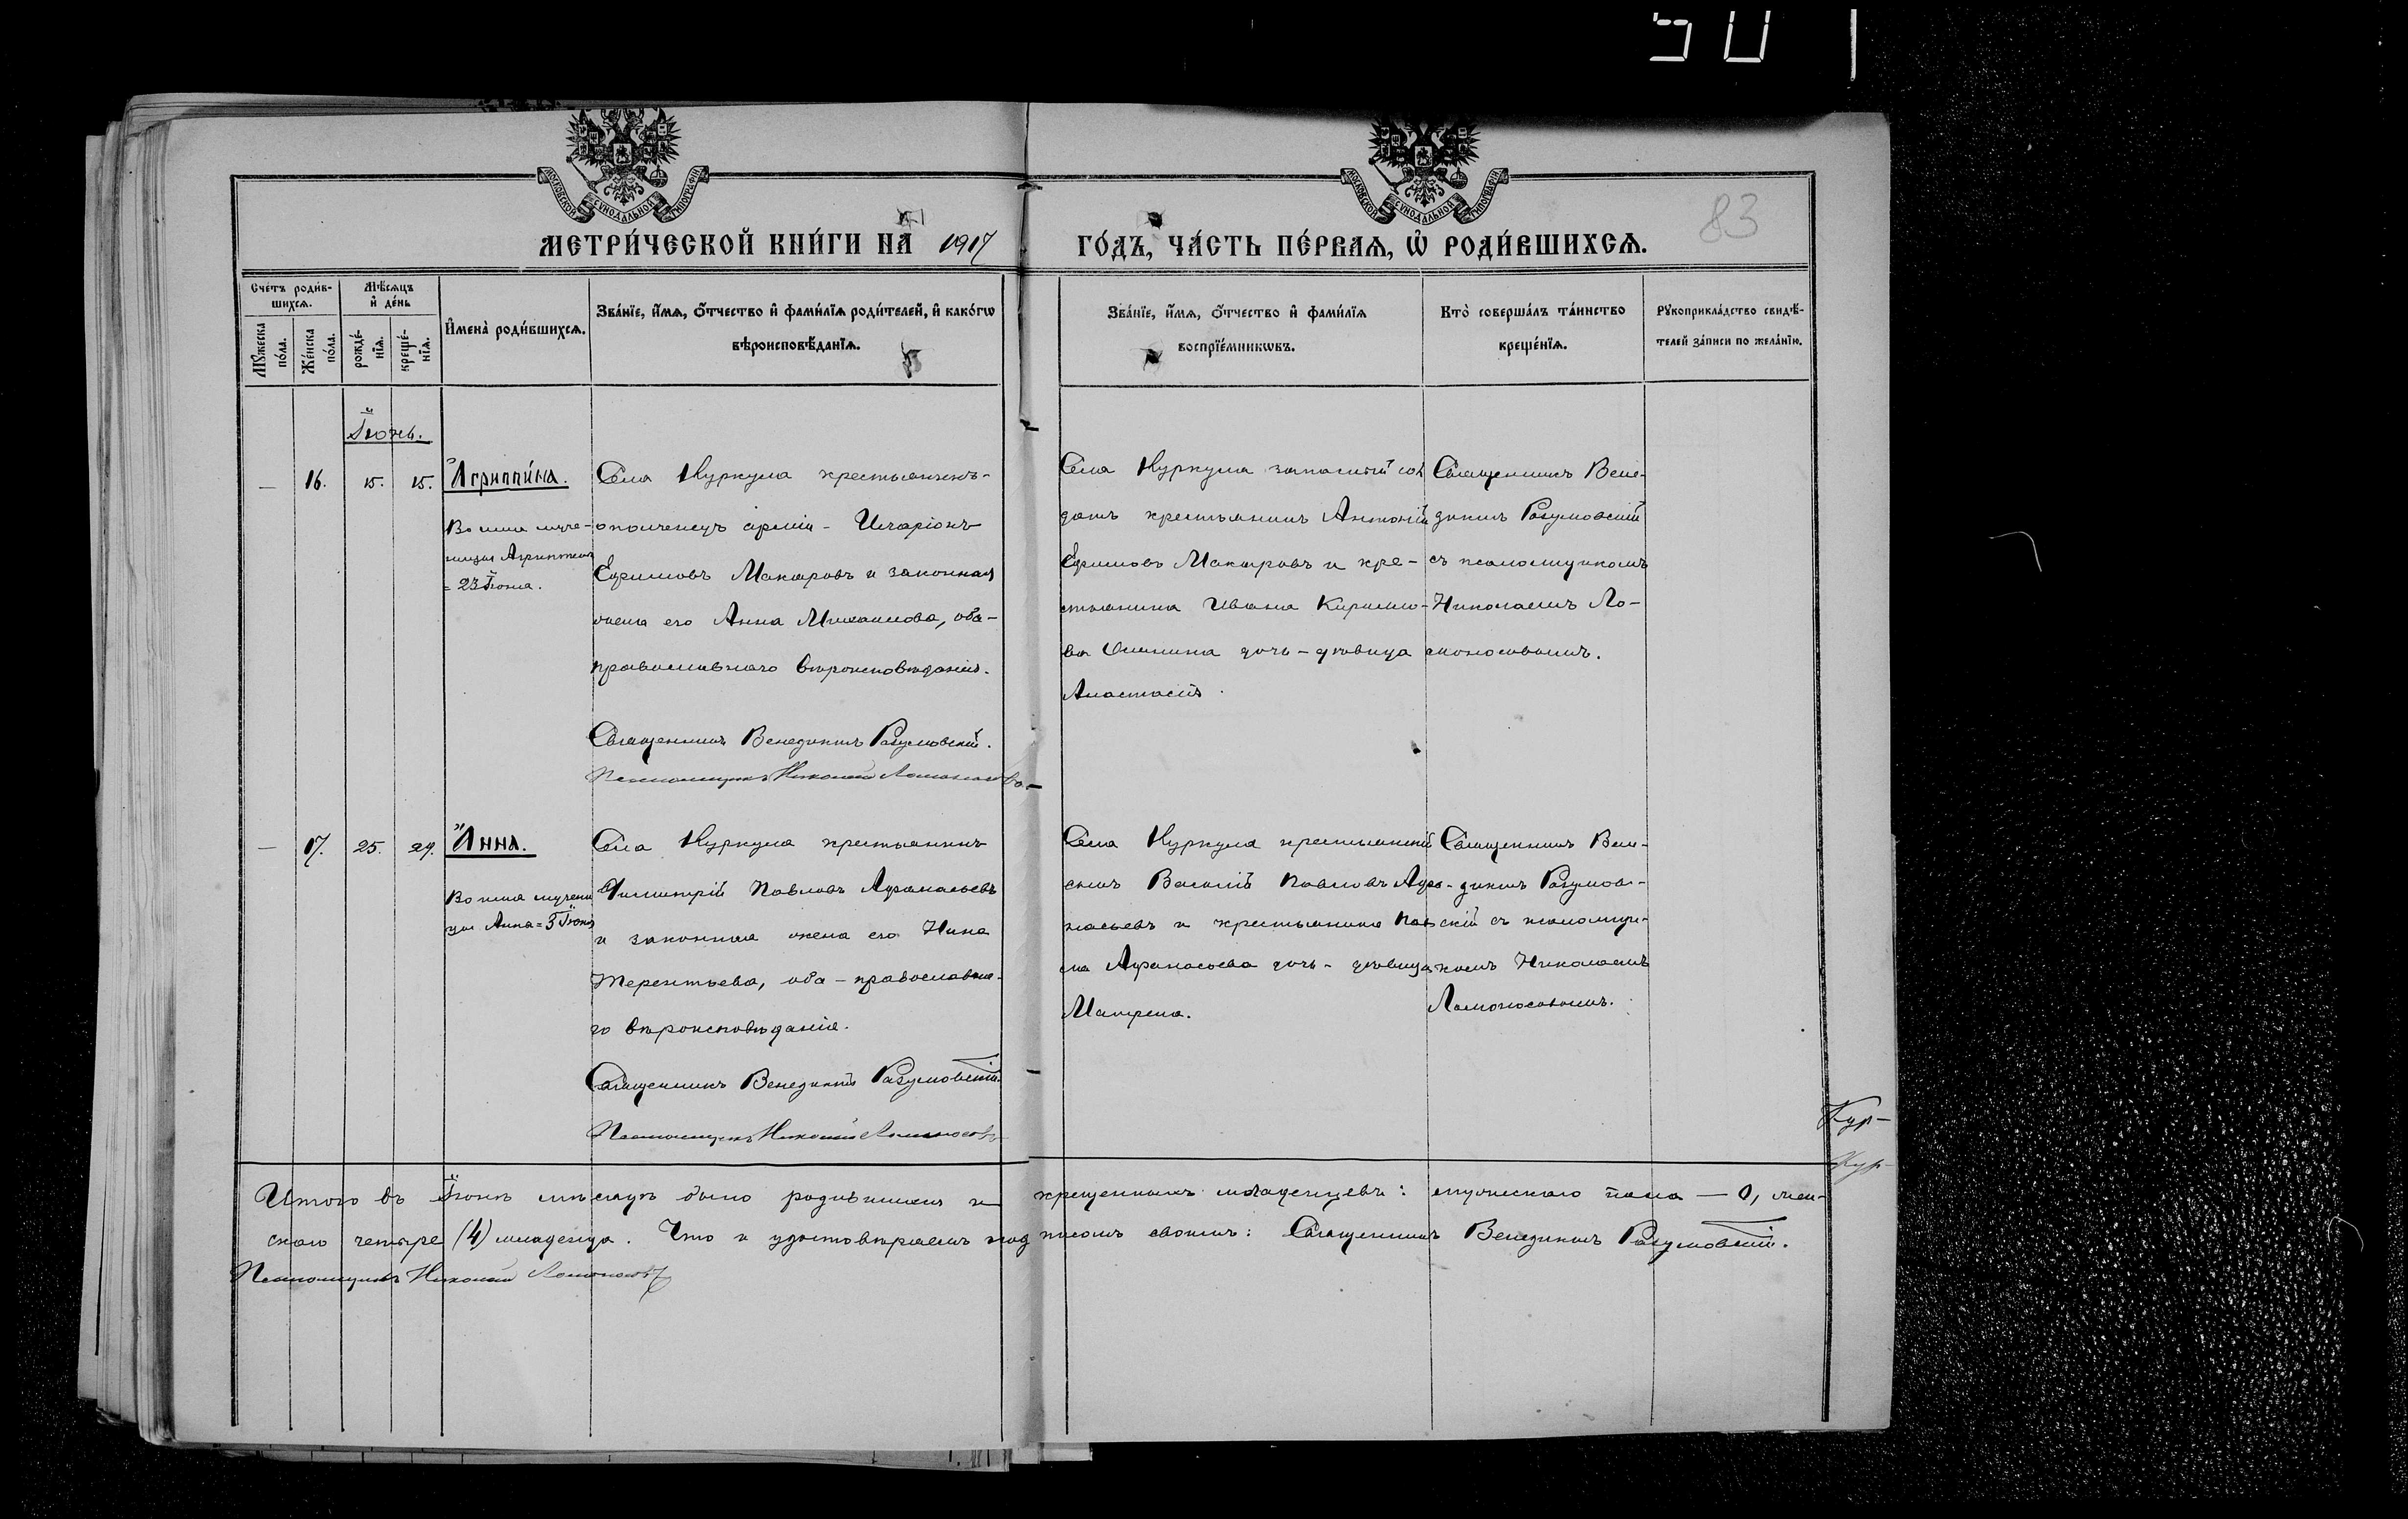 50
МОСКОВСКОЙ СѴНОДАЛЬНОЙ ТИПОГРАФІИ
МОСКОВСКОЙ СѴНОДАЛЬНОЙ ТИПОГРАФІИ
83
МЕТРИ́ЧЕСКОЙ КНИ́ГИ НА 1917 ГО́ДЪ, ЧА́СТЬ ПЕ́РВАѦ, Ѡ РОДИ́ВШИХСѦ.
Сче́тъ роди́в-
шихсѧ.
Мꙋ́жеска
по́ла.
Же́нска
по́ла.
Мѣ́сѧцъ
и҆ де́нь
рожде́-
нїѧ.
креще́-
нїѧ.
И҆мена̀ роди́вшихсѧ.
Зва́нїе, и҆́мѧ, ѻ҆́тчество и҆ фами́лїѧ роди́телей, и҆ како́гѡ
вѣроисповѣ́данїѧ.
Зва́нїе, и҆́мѧ, ѻ҆́тчество и҆ фами́лїѧ
воспрїе́мникѡвъ.
Кто̀ соверша́лъ та́инство
креще́нїѧ.
Рꙋкоприкла́дство свидѣ́-
телей за́писи по жела́нїю.
Іюнь.
— 16. 15. 15. Агриппи́на.
Во имя муче-
ницы Агриппины
= 23 Іюня.
Села Нуркума крестьянинъ-
ополченецъ арміи - Иларіонъ
Ефимовъ Макаровъ и законная
жена его Анна Михаилова, оба-
православнаго вѣроисповѣданія.
Священникъ Венедиктъ Разумовскій.
Псаломщикъ Николай Ломоносовъ.
Села Нуркума запасный сол
датъ крестьянинъ Антоній
Ефимовъ Макаровъ и кре-
стьянина Ивана Кирилло-
ва дочь - дѣвица
Анастасія.
Священникъ Вене-
диктъ Разумовскій
съ псаломщикомъ
Николаемъ Ло-
моносовымъ.
— 17. 25. 29. Анна.
Во имя мучени
цы Анны = 3 Іюня
Села Нуркума крестьянинъ
Димитрій Павловъ Афанасьевъ
и законная жена его Нина
Терентьева, оба - православна-
го вѣроисповѣданія.
Священникъ Венедиктъ Разумовскій.
Псаломщикъ Николай Ломоносовъ
Села Нуркума крестьянскій
сынъ Василій Павловъ Афа-
насьевъ и крестьянина Пав
ла Афанасьева дочь - дѣвица
Матрена.
Священникъ Вене-
диктъ Разумов-
скій съ псаломщи-
комъ Николаемъ
Ломоносовымъ.
Кур-
Кур-
Итого въ Іюнѣ мѣсяцѣ было родившихся и крещенныхъ младенцевъ: мужескаго пола — 0, жен-
скаго четыре (4) младенца. Что и удостовѣряемъ подписомъ своимъ: Священникъ Венедиктъ Разумовскій.
Псаломщикъ Николай Ломоносовъ